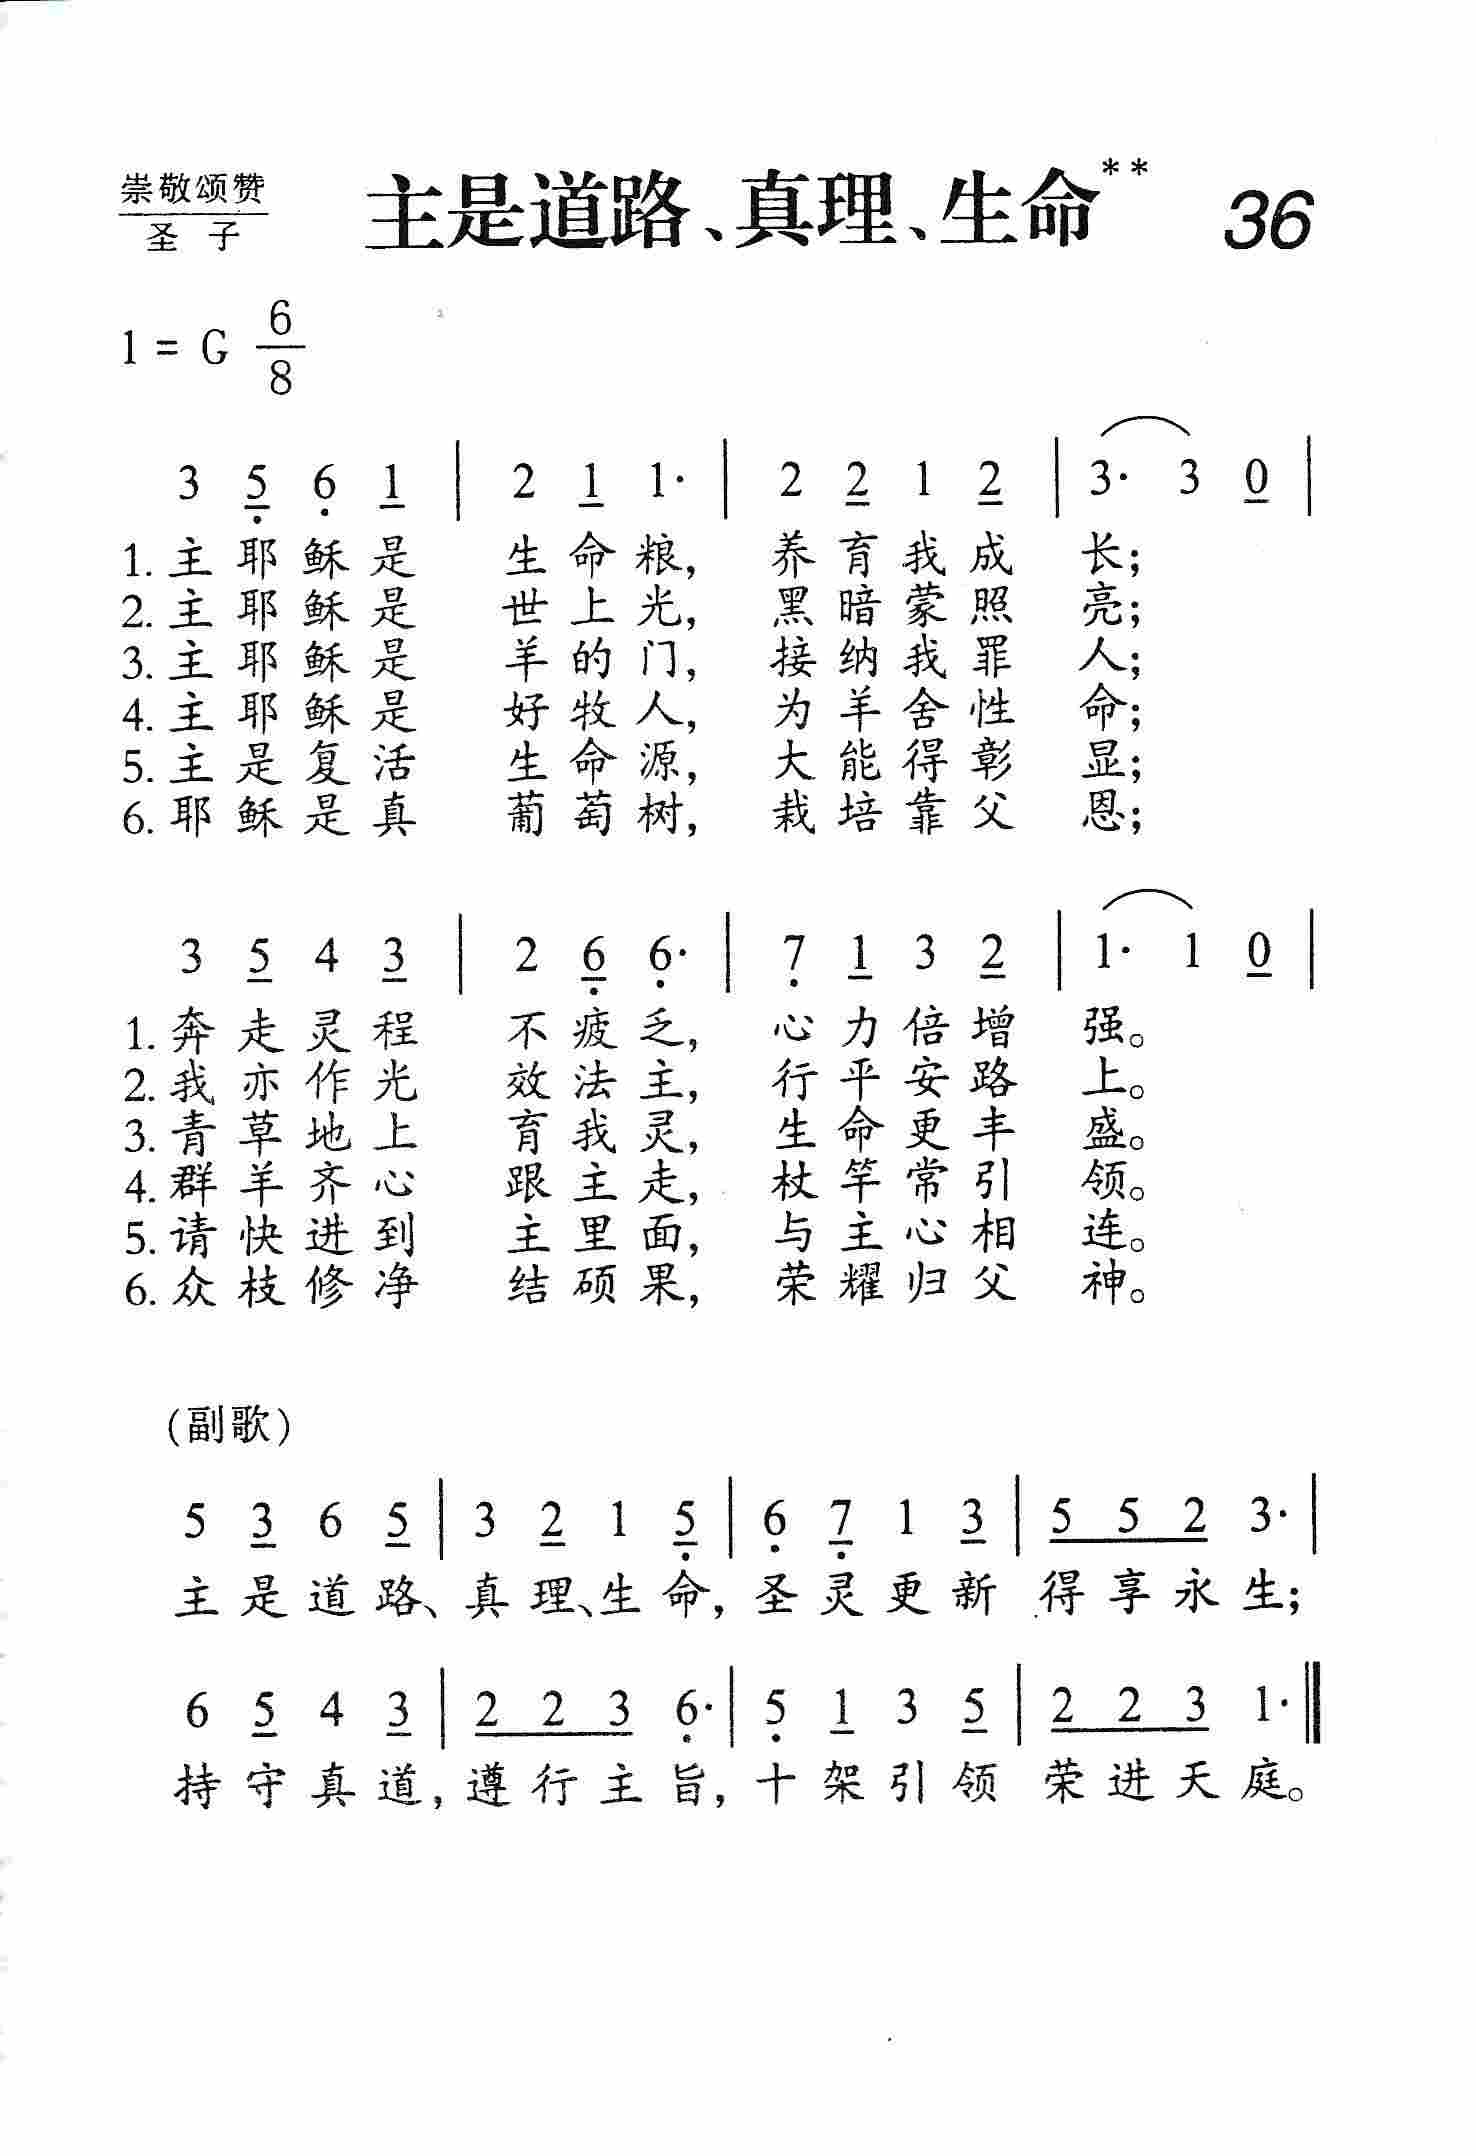 崇敬颂赞
圣 子
主是道路、真理、生命**
36
1 = G 6/8
3 5 6 1 | 2 1 1· | 2 2 1 2 | 3· 3 0 |
1. 主耶稣是 生命粮, 养育我成 长;
2. 主耶稣是 世上光, 黑暗蒙照 亮;
3. 主耶稣是 羊的门, 接纳我罪 人;
4. 主耶稣是 好牧人, 为羊舍性 命;
5. 主是复活 生命源, 大能得彰 显;
6. 耶稣是真 葡萄树, 栽培靠父 恩;
3 5 4 3 | 2 6 6· | 7 1 3 2 | 1· 1 0 |
1. 奔走灵程 不疲乏, 心力倍增 强。
2. 我亦作光 效法主, 行平安路 上。
3. 青草地上 育我灵, 生命更丰 盛。
4. 群羊齐心 跟主走, 杖竿常引 领。
5. 请快进到 主里面, 与主心相 连。
6. 众枝修净 结硕果, 荣耀归父 神。
(副歌)
5 3 6 5 | 3 2 1 5 | 6 7 1 3 | 5 5 2 3· |
主是道路、真理、生命, 圣灵更新 得享永生;
6 5 4 3 | 2 2 3 6· | 5 1 3 5 | 2 2 3 1· ‖
持守真道, 遵行主旨, 十架引领 荣进天庭。